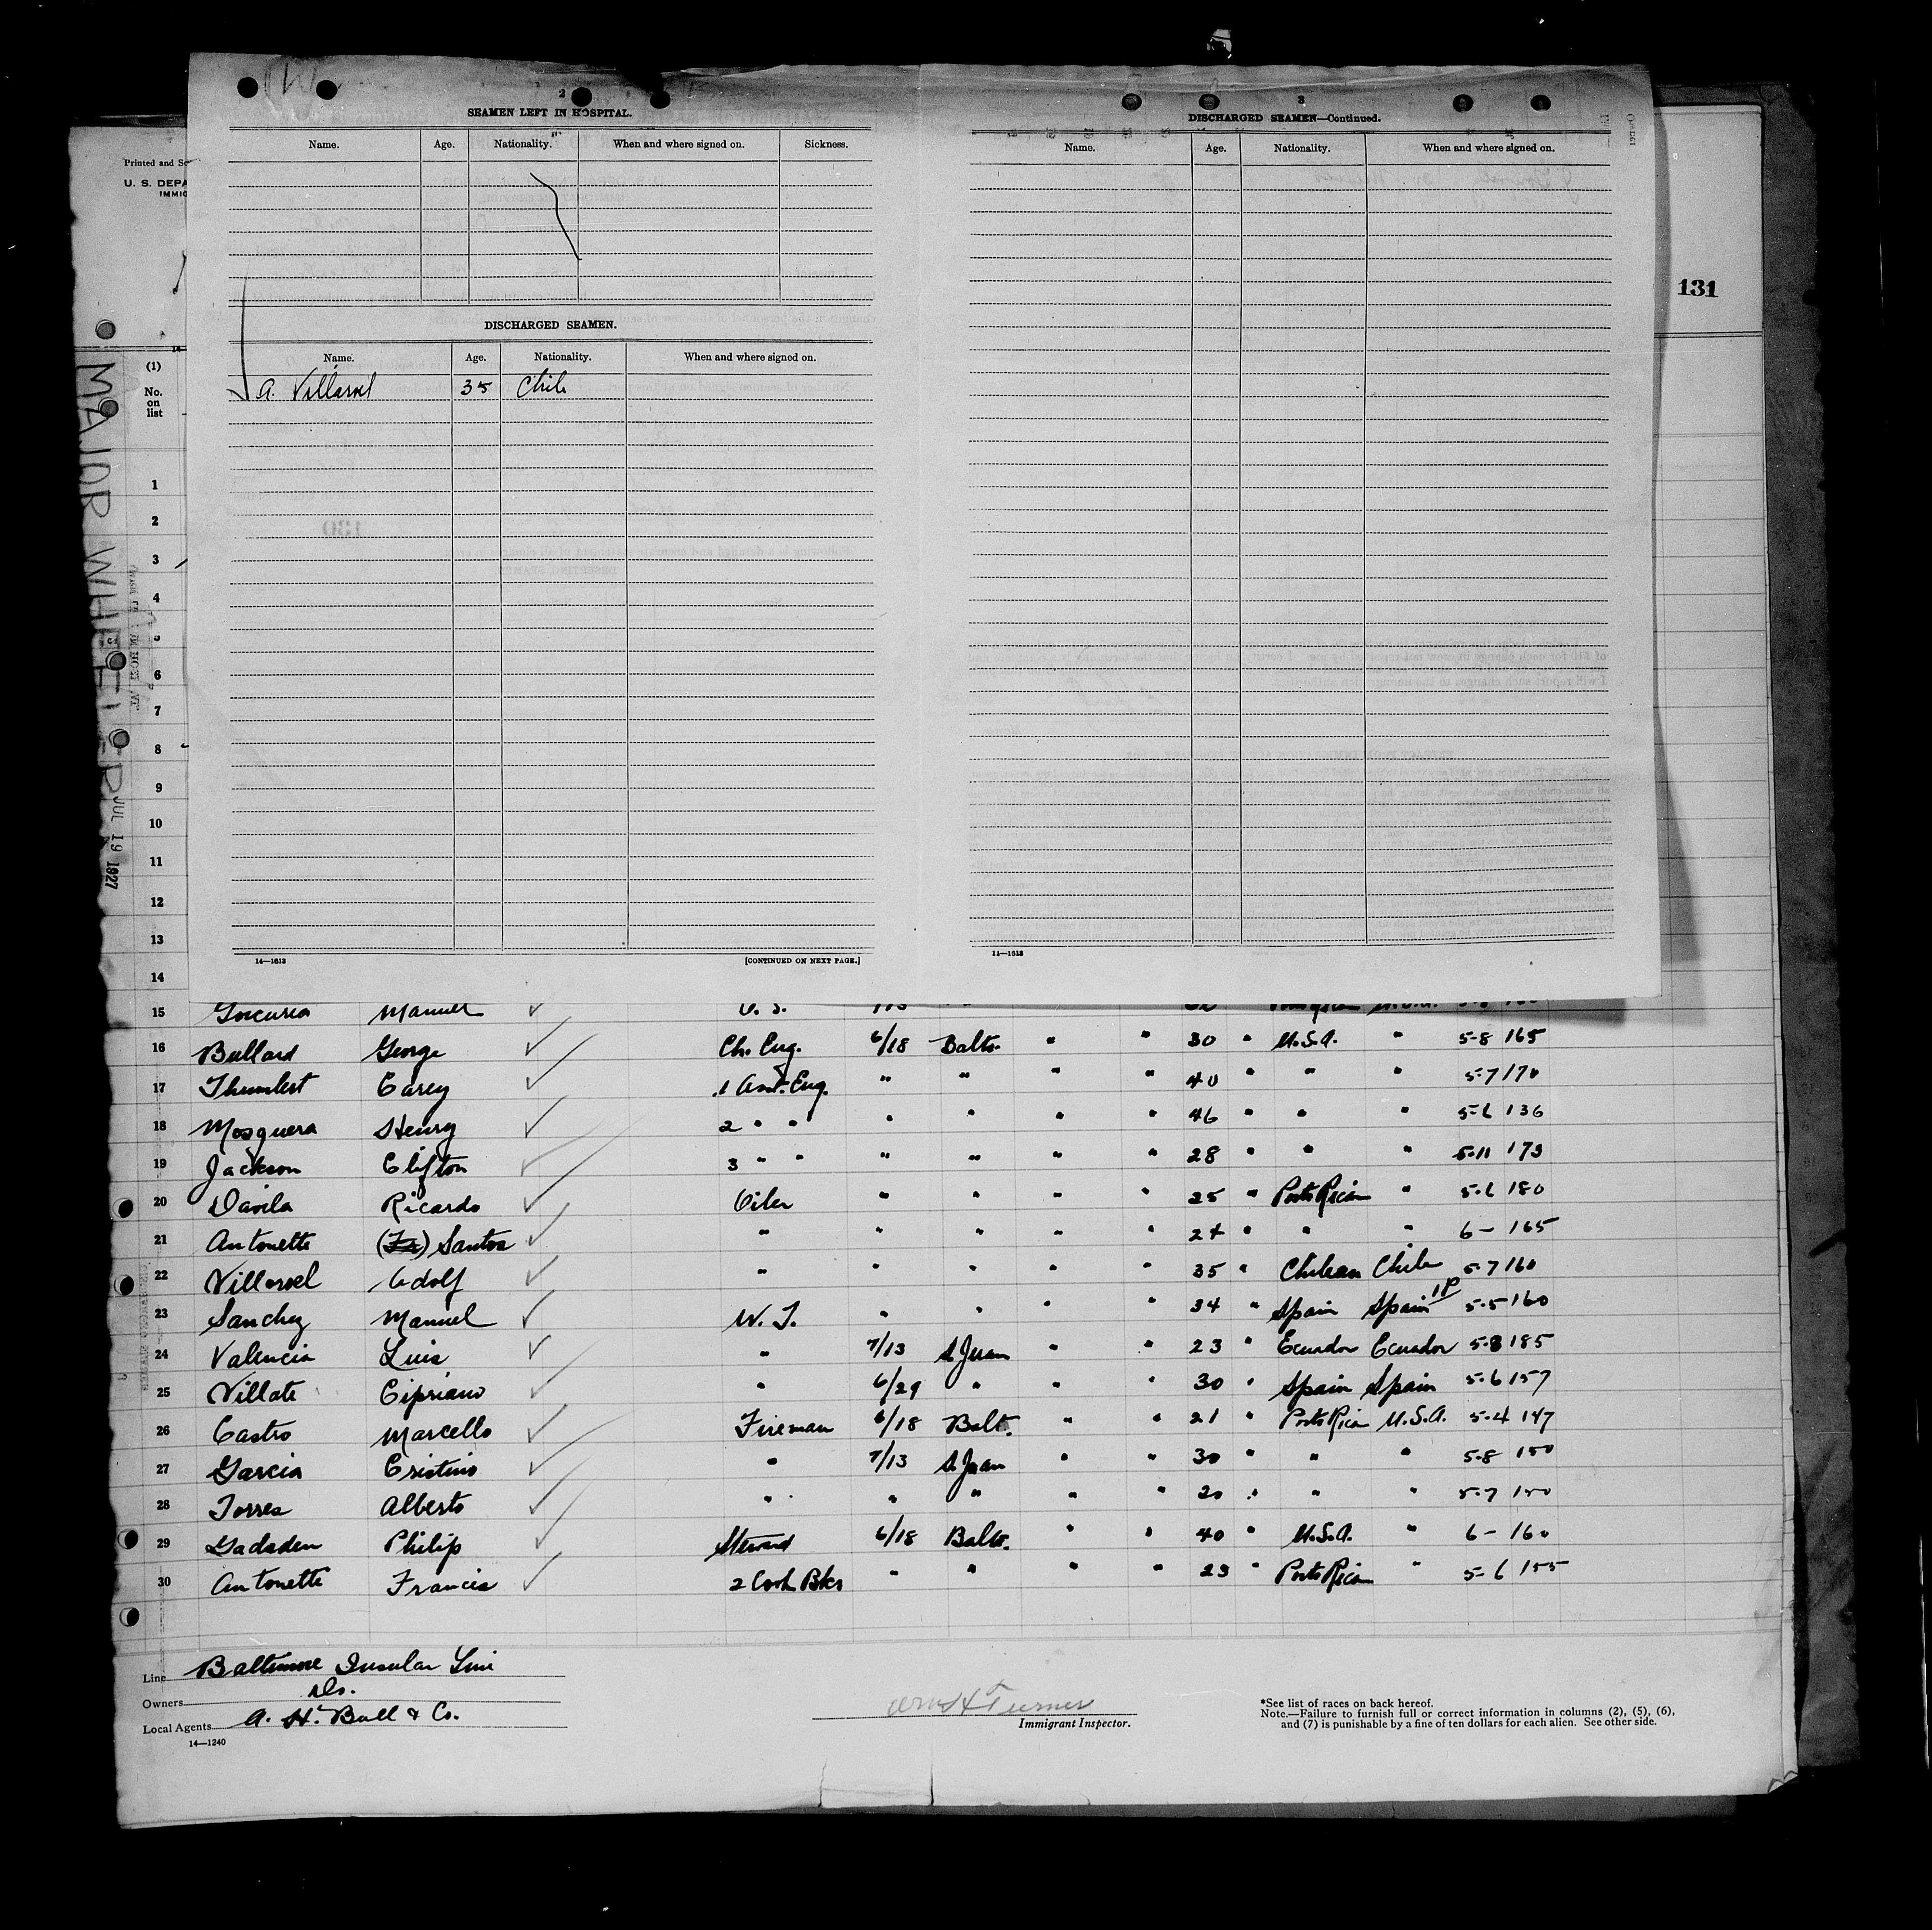 2
SEAMEN LEFT IN HOSPITAL.
Name. Age. Nationality. When and where signed on. Sickness.
DISCHARGED SEAMEN.
Name. Age. Nationality. When and where signed on.
A. Villaroel 35 Chile
14—1613 [CONTINUED ON NEXT PAGE.]
3
DISCHARGED SEAMEN—Continued.
Name. Age. Nationality. When and where signed on.
14—1613
131
Printed and
U. S. DEPA
IMMIG
MAJOR WHEELER
JUL 19 1927
(1)
No. on list
1
2
3
4
5
6
7
8
9
10
11
12
13
14
15 Goicuria Manuel
16 Bullard George Ch. Eng. 6/18 Balto. " " 30 " U.S.A. " 5-8 165
17 Thumlert Carey 1 Asst. Eng. " " " " 40 " " " 5-7 170
18 Mosquera Henry 2 " " " " " " 46 " " " 5-6 136
19 Jackson Clifton 3 " " " " " " 28 " " " 5-11 173
20 Davila Ricardo Oiler " " " " 25 " Porto Rican " 5-6 180
21 Antonette Santos " " " " " 24 " " " 6- 165
22 Villaroel Adolf " " " " 35 " Chilean Chile 5-7 160
23 Sanchez Manuel W. T. " " " " 34 " Spain Spain 5-5 160
24 Valencia Luis " 7/13 S. Juan " " 23 " Ecuador Ecuador 5-8 185
25 Villate Cipriano " 6/29 " " " 30 " Spain Spain 5-6 157
26 Castro Marcello Fireman 6/18 Balt. " " 21 " Porto Rican U.S.A. 5-4 147
27 Garcia Cristino " 7/13 S. Juan " " 30 " " " 5-8 150
28 Torres Alberto " " " " " 20 " " " 5-7 150
29 Gadsden Philip Steward 6/18 Balto. " " 40 " U.S.A. " 6- 160
30 Antonette Francis 2 Cook Bkr " " " " 23 " Porto Rican " 5-6 155
Line Baltimore Insular Line
Owners Do.
Local Agents A. H. Bull & Co.
14—1240
Turner
Immigrant Inspector.
*See list of races on back hereof.
Note.—Failure to furnish full or correct information in columns (2), (5), (6),
and (7) is punishable by a fine of ten dollars for each alien. See other side.